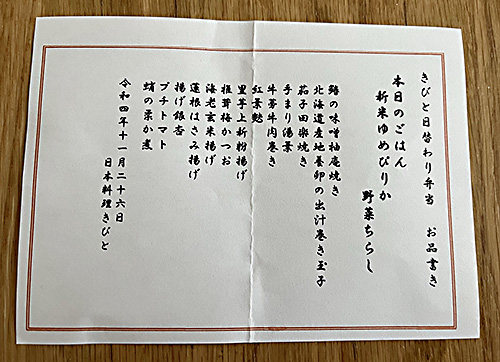 きびと日替わり弁当　お品書き
本日のごはん
新米ゆめぴりか
野菜ちらし
鰆の味噌柚庵焼き
北海道産地養卵の出汁巻き玉子
茄子田楽焼き
手まり湯葉
牛蒡牛肉巻き
紅葉麩
里芋上新粉揚げ
椎茸梅かつお
海老玄米揚げ
蓮根はさみ揚げ
揚げ銀杏
プチトマト
蛸の柔か煮
令和四年十一月二十六日
日本料理きびと